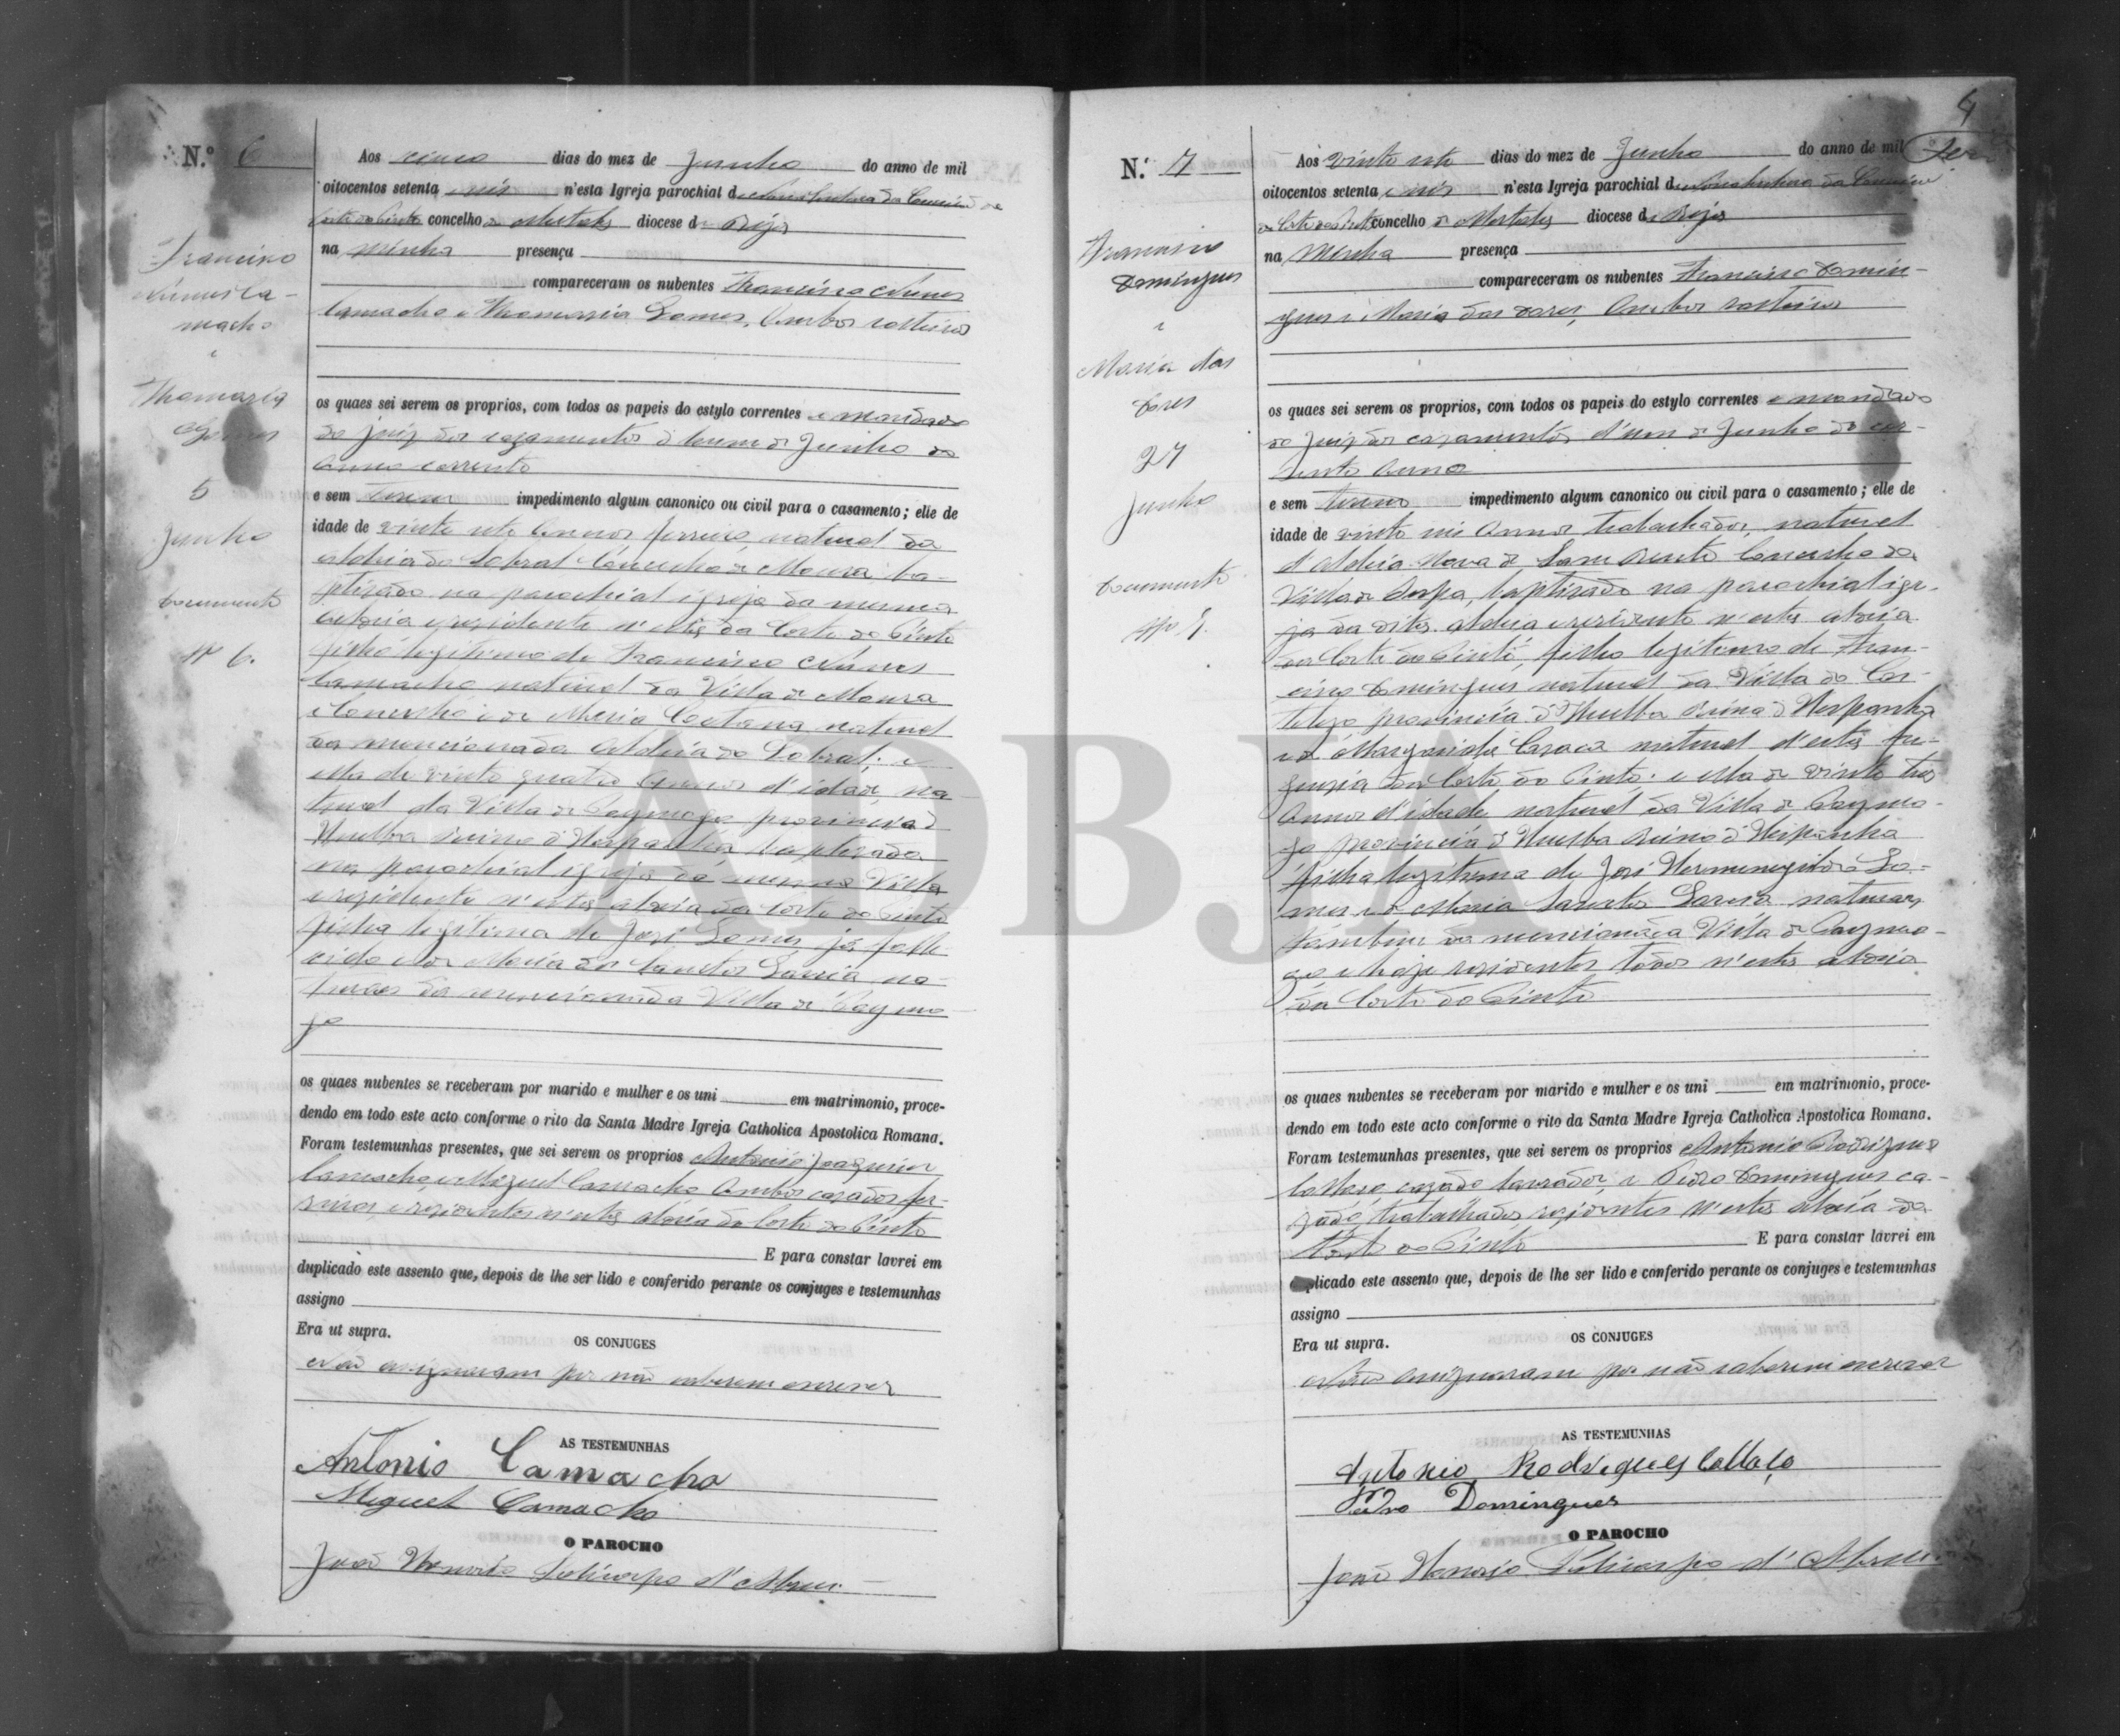 N.º 6
Francisco
Nunes Ca-
macho
e
Thomazia
Gomes
5
Junho
Documento
Nº 6.
Aos cinco dias do mez de Junho do anno de mil
oitocentos setenta e seis n'esta Igreja parochial de Nossa Senhora da Conceição da
Corte do Pinto concelho de Mertola diocese de Beja
na minha presença
compareceram os nubentes Francisco Nunes
Camacho e Thomazia Gomes, ambos solteiros
os quaes sei serem os proprios, com todos os papeis do estylo correntes e mandado
do juiz dos cazamentos de hum de Junho do
anno corrente
e sem impedimento algum canonico ou civil para o casamento; elle de
idade de vinte sete annos ferreiro, natural da
aldeia do Sobral Concelho de Moura, ba-
ptizado na parochial igreja da mesma
aldeia e rezidente n'esta da Corte do Pinto
filho legitimo de Francisco Nunes
Camacho natural da Villa de Moura
e Concelho e de Maria Caetana natural
da mencionada Aldeia do Sobral; e
ella de vinte quatro annos d'idade, na-
tural da Villa de Paymogo provincia d'
Huelba reino d'Hespanha baptizada
na parochial igreja da mesma Villa
e rezidente n'esta aldeia da Corte do Pinto
filha legitima de José Gomes já falle-
cido e de Maria dos Sanctos Garcia na-
turaes da mencionada Villa de Paymo-
go
os quaes nubentes se receberam por marido e mulher e os uni em matrimonio, proce-
dendo em todo este acto conforme o rito da Santa Madre Igreja Catholica Apostolica Romana.
Foram testemunhas presentes, que sei serem os proprios Antonio Joaquim
Camacho e Miguel Camacho ambos cazados fer-
reiros, e rezidentes n'esta aldeia da Corte do Pinto
E para constar lavrei em
duplicado este assento que, depois de lhe ser lido e conferido perante os conjuges e testemunhas
assigno
Era ut supra.
OS CONJUGES
Não assignaram por não saberem escrever
AS TESTEMUNHAS
Antonio Camacho
Miguel Camacho
O PAROCHO
João Honorio Policarpo d'Abreu
4
N.º 7
Francisco
Domingues
e
Maria das
Dores
27
Junho
Documento
Nº 7.
Aos vinte sete dias do mez de Junho do anno de mil
oitocentos setenta e seis n'esta Igreja parochial de Nossa Senhora da Conceição
da Corte do Pinto concelho de Mertola diocese de Beja
na minha presença
compareceram os nubentes Francisco Domin-
gues e Maria das Dores, ambos solteiros
os quaes sei serem os proprios, com todos os papeis do estylo correntes e mandado
do juiz dos cazamentos d'um de Junho do cor-
rente anno
e sem impedimento algum canonico ou civil para o casamento; elle de
idade de vinte seis annos trabalhador, natural
d'Aldeia Nova de Sam Bento Concelho da
Villa de Serpa, baptizado na parochial igre-
ja da dita aldeia e rezidente n'esta aldeia
da Corte do Pinto, filho legitimo de Fran-
cisco Domingues natural da Villa do Cas-
telejo provincia d'Huelba reino d'Hespanha
e de Margarida Caraca natural d'esta fre-
guezia da Corte do Pinto; e ella de vinte tres
annos d'idade natural da Villa de Paymo-
go provincia d'Huelba reino d'Hespanha
filha legitima de José Hermenegildo Go-
mes e de Maria Sanctos Garcia naturaes
tambem da mencionada Villa de Paymo-
go e hoje rezidentes todos n'esta aldeia
da Corte do Pinto
os quaes nubentes se receberam por marido e mulher e os uni em matrimonio, proce-
dendo em todo este acto conforme o rito da Santa Madre Igreja Catholica Apostolica Romana.
Foram testemunhas presentes, que sei serem os proprios Antonio Rodrigues
Collaço cazado lavrador, e Pedro Domingues ca-
zado, trabalhador, rezidentes n'esta aldeia da
Corte do Pinto E para constar lavrei em
duplicado este assento que, depois de lhe ser lido e conferido perante os conjuges e testemunhas
assigno
Era ut supra.
OS CONJUGES
Não assignaram por não saberem escrever
AS TESTEMUNHAS
Antonio Rodrigues Collaço
Pedro Domingues
O PAROCHO
João Honorio Policarpo d'Abreu
ADBJA